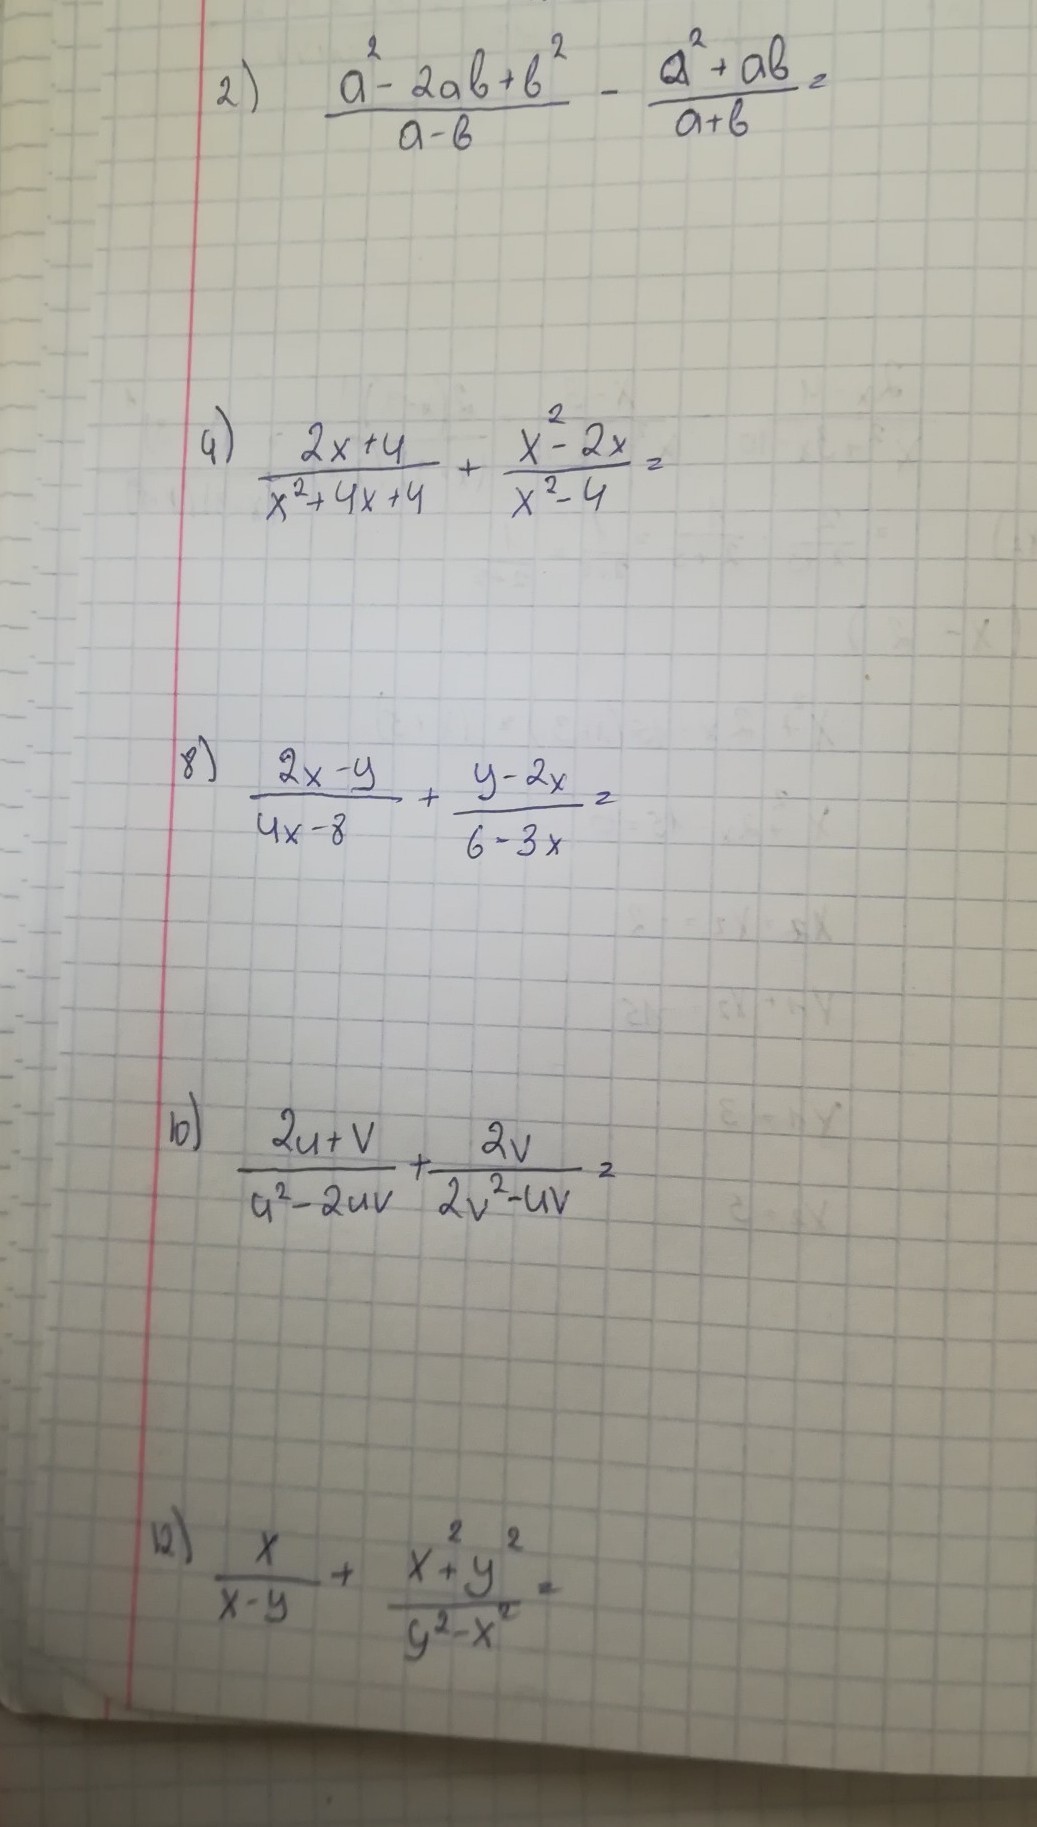 2) (a² - 2ab + b²)/(a - b) - (a² + ab)/(a + b) =
4) (2x + 4)/(x² + 4x + 4) + (x² - 2x)/(x² - 4) =
8) (2x - y)/(4x - 8) + (y - 2x)/(6 - 3x) =
10) (2u + v)/(u² - 2uv) + 2v/(2v² - uv) =
12) x/(x - y) + (x² + y²)/(y² - x²) =